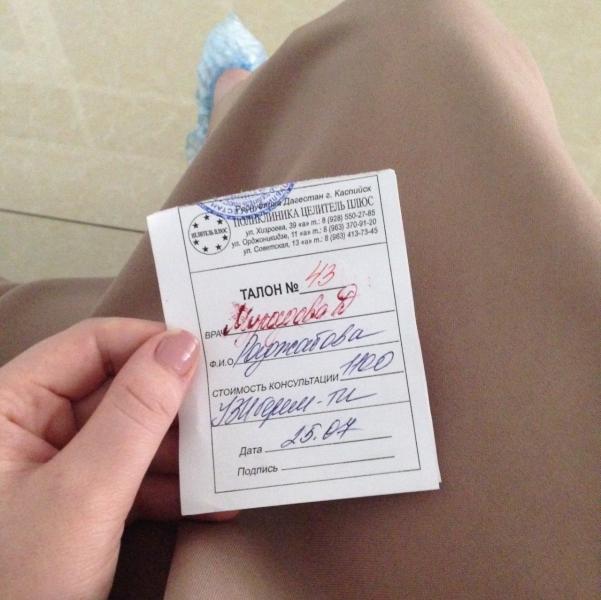 Республика Дагестан г. Каспийск
ПОЛИКЛИНИКА ЦЕЛИТЕЛЬ ПЛЮС
ул. Хизроева, 39 «а» т.: 8 (928) 550-27-85
ул. Орджоникидзе, 11 «а» т.: 8 (963) 370-91-20
ул. Советская, 13 «а» т.: 8 (963) 413-73-45
ЦЕЛИТЕЛЬ ПЛЮС
ТАЛОН № 43
ВРАЧ
Ф.И.О. Раджабова
СТОИМОСТЬ КОНСУЛЬТАЦИИ 1100
УЗИ берем-ти
Дата 25.07
Подпись